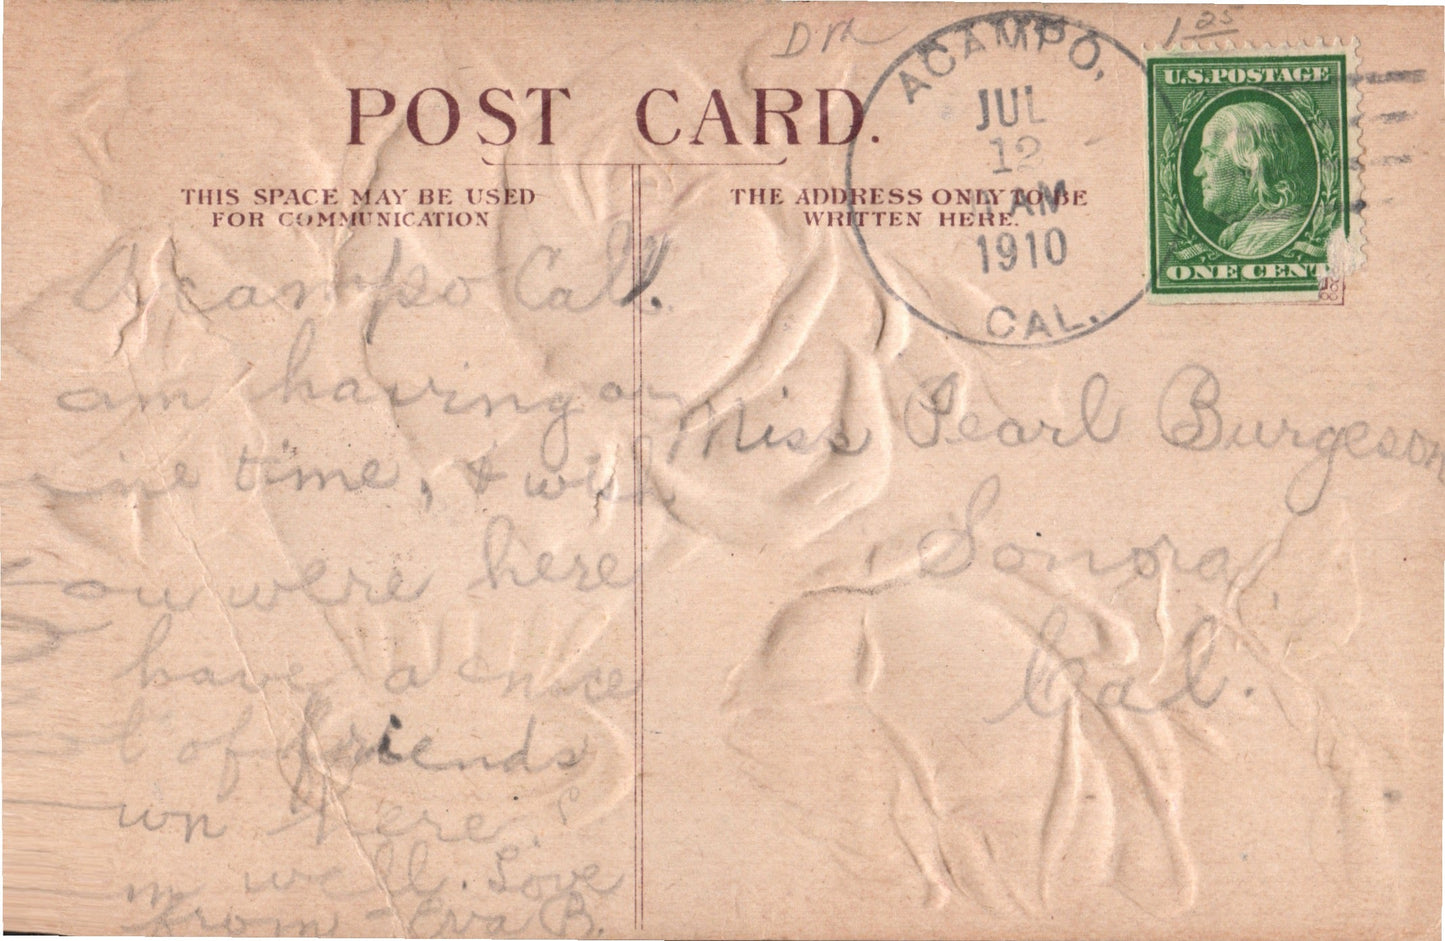 Dra
1 25
ACAMPO,
JUL
12
AM
1910
CAL.
U.S. POSTAGE
ONE CENT
POST CARD.
THIS SPACE MAY BE USED
FOR COMMUNICATION
THE ADDRESS ONLY TO BE
WRITTEN HERE.
Acampo Cal.
am having a
ine time, & wish
ou were here
have a nice
t of friends
wn here.
m well. Love
from - Eva B.
Miss Pearl Burgeson
Sonora
Cal.